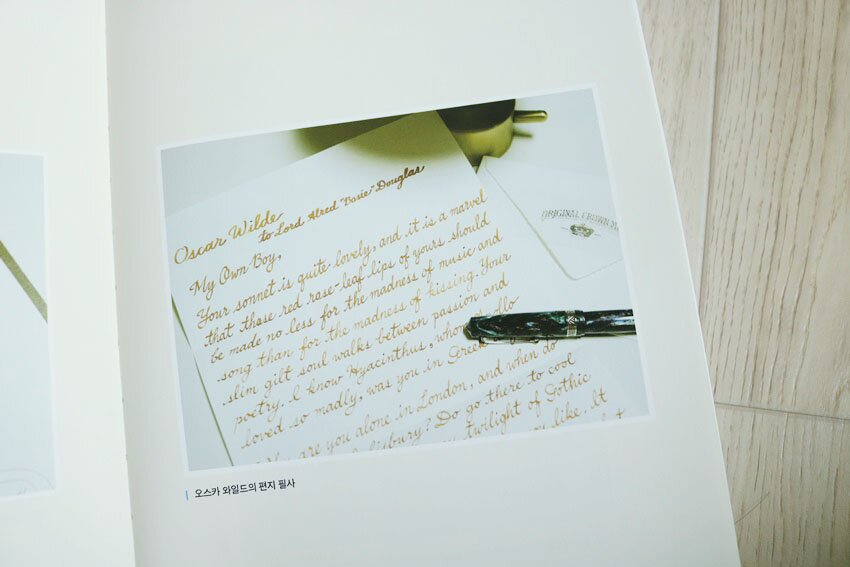 Oscar Wilde
to Lord Alred "Bosie" Douglas
My Own Boy,
Your sonnet is quite lovely, and it is a marvel
that those red rose-leaf lips of yours should
be made no less for the madness of music and
song than for the madness of kissing. Your
slim gilt soul walks between passion and
poetry. I know Hyacinthus, whom
loved so madly, was you in Greek
are you alone in London, and when do
Do go there to cool
twilight of Gothic
you like. It
ORIGINAL CROWN M
오스카 와일드의 편지 필사